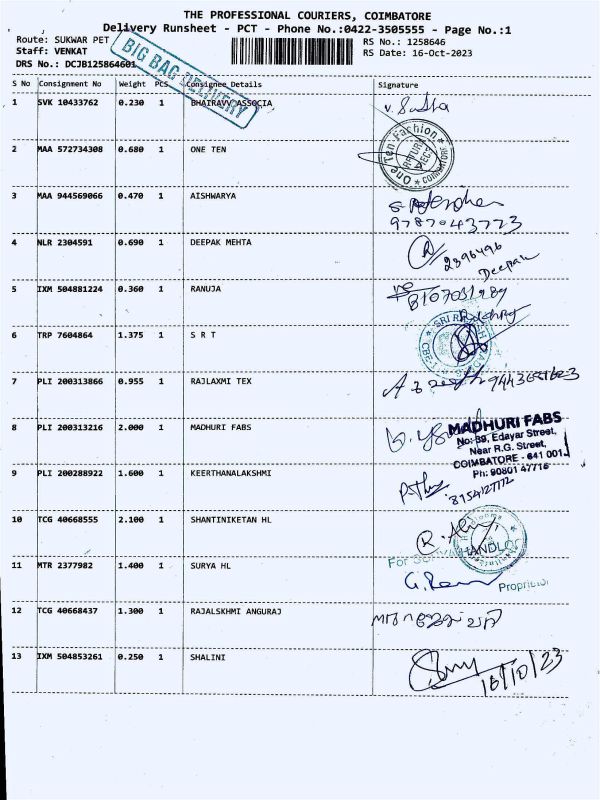 THE PROFESSIONAL COURIERS, COIMBATORE
Delivery Runsheet - PCT - Phone No.:0422-3505555 - Page No.:1
Route: SUKWAR PET
RS No.: 1258646
Staff: VENKAT
RS Date: 16-Oct-2023
DRS No.: DCJB125864601
BIG BAG DELIVERY
S No Consignment No Weight PCS Consignee Details Signature
1 SVK 10433762 0.230 1 BHAIRAVV ASSOCIA
One Ten Fashion COIMBATORE
2 MAA 572734308 0.680 1 ONE TEN
3 MAA 944569066 0.470 1 AISHWARYA
9787043773
4 NLR 2304591 0.690 1 DEEPAK MEHTA
2396496
Deepak
5 IXM 504881224 0.360 1 RANUJA
6 TRP 7604864 1.375 1 S R T
7 PLI 200313866 0.955 1 RAJLAXMI TEX
8 PLI 200313216 2.000 1 MADHURI FABS
MADHURI FABS
No: 39, Edayar Street,
Near R.G. Street,
COIMBATORE - 641 001.
Ph: 90801 47716
9 PLI 200288922 1.600 1 KEERTHANALAKSHMI
10 TCG 40668555 2.100 1 SHANTINIKETAN HL
11 MTR 2377982 1.400 1 SURYA HL
Proprietor
12 TCG 40668437 1.300 1 RAJALSKHMI ANGURAJ
13 IXM 504853261 0.250 1 SHALINI
16/10/23